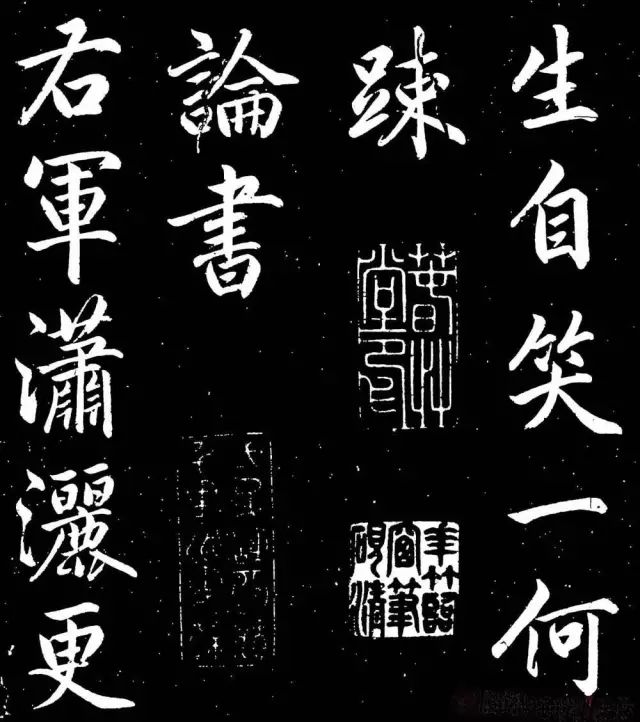 生自笑一何
踈
論書
右軍瀟灑更